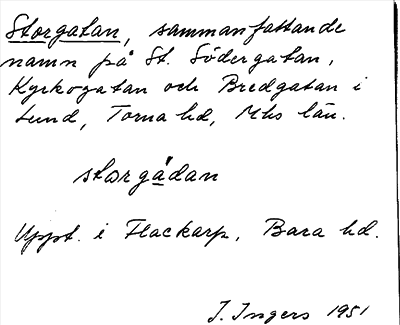 Storgatan, sammanfattande
namn på St. Södergatan,
Kyrkogatan och Bredgatan i
Lund, Torna hd, Mhs län.
storgådan
Uppt. i Flackarp, Bara hd.
J. Ingers 1951